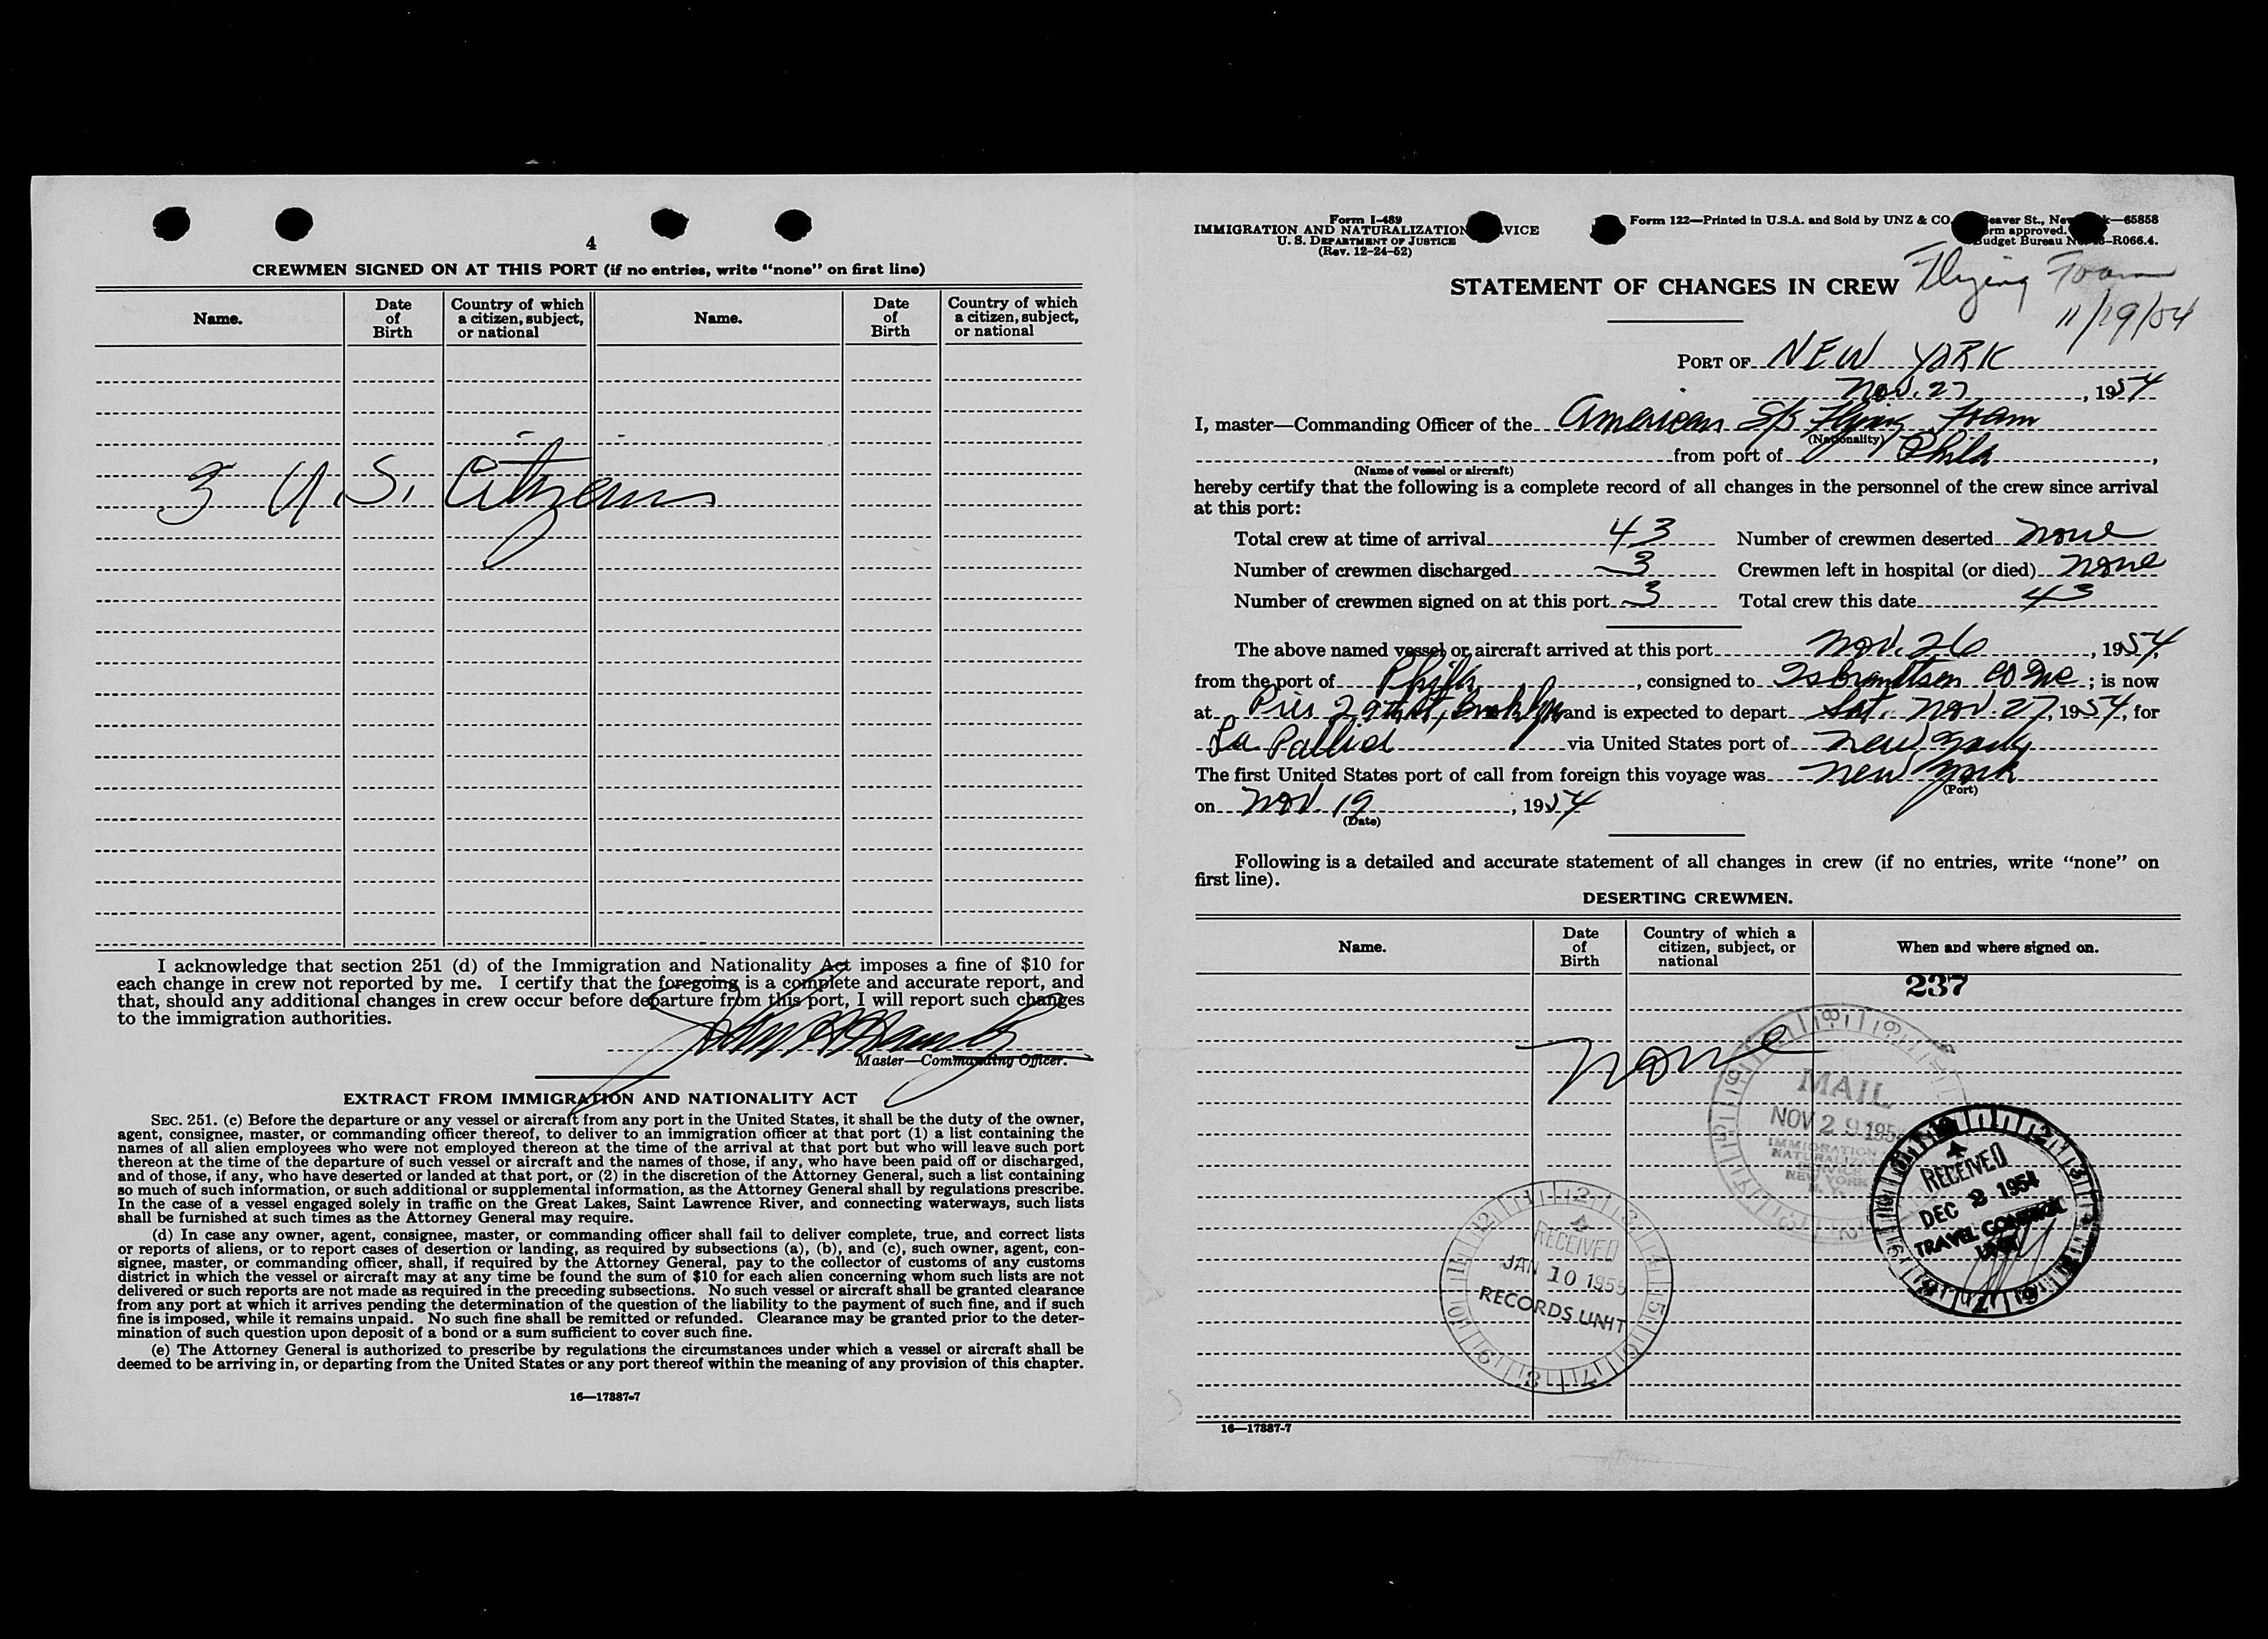 4
CREWMEN SIGNED ON AT THIS PORT (if no entries, write "none" on first line)
Name.
Date of Birth
Country of which a citizen, subject, or national
Name.
Date of Birth
Country of which a citizen, subject, or national
3 U.S. Citizens
I acknowledge that section 251 (d) of the Immigration and Nationality Act imposes a fine of $10 for
each change in crew not reported by me. I certify that the foregoing is a complete and accurate report, and
that, should any additional changes in crew occur before departure from this port, I will report such changes
to the immigration authorities.
Master—Commanding Officer.
EXTRACT FROM IMMIGRATION AND NATIONALITY ACT
SEC. 251. (c) Before the departure or any vessel or aircraft from any port in the United States, it shall be the duty of the owner,
agent, consignee, master, or commanding officer thereof, to deliver to an immigration officer at that port (1) a list containing the
names of all alien employees who were not employed thereon at the time of the arrival at that port but who will leave such port
thereon at the time of the departure of such vessel or aircraft and the names of those, if any, who have been paid off or discharged,
and of those, if any, who have deserted or landed at that port, or (2) in the discretion of the Attorney General, such a list containing
so much of such information, or such additional or supplemental information, as the Attorney General shall by regulations prescribe.
In the case of a vessel engaged solely in traffic on the Great Lakes, Saint Lawrence River, and connecting waterways, such lists
shall be furnished at such times as the Attorney General may require.
(d) In case any owner, agent, consignee, master, or commanding officer shall fail to deliver complete, true, and correct lists
or reports of aliens, or to report cases of desertion or landing, as required by subsections (a), (b), and (c), such owner, agent, con-
signee, master, or commanding officer, shall, if required by the Attorney General, pay to the collector of customs of any customs
district in which the vessel or aircraft may at any time be found the sum of $10 for each alien concerning whom such lists are not
delivered or such reports are not made as required in the preceding subsections. No such vessel or aircraft shall be granted clearance
from any port at which it arrives pending the determination of the question of the liability to the payment of such fine, and if such
fine is imposed, while it remains unpaid. No such fine shall be remitted or refunded. Clearance may be granted prior to the deter-
mination of such question upon deposit of a bond or a sum sufficient to cover such fine.
(e) The Attorney General is authorized to prescribe by regulations the circumstances under which a vessel or aircraft shall be
deemed to be arriving in, or departing from the United States or any port thereof within the meaning of any provision of this chapter.
16—17887-7
Form I-489
IMMIGRATION AND NATURALIZATION VICE
U. S. DEPARTMENT OF JUSTICE
(Rev. 12-24-52)
Form 122—Printed in U.S.A. and Sold by UNZ & CO. eaver St., New k—65858
rm approved.
Budget Bureau No. –R066.4.
STATEMENT OF CHANGES IN CREW Flying Foam
11/19/54
PORT OF NEW YORK
Nov. 27, 1954
I, master—Commanding Officer of the American S/S Flying Foam
(Nationality)
from port of Phila,
(Name of vessel or aircraft)
hereby certify that the following is a complete record of all changes in the personnel of the crew since arrival
at this port:
Total crew at time of arrival 43 Number of crewmen deserted none
Number of crewmen discharged 3 Crewmen left in hospital (or died) none
Number of crewmen signed on at this port 3 Total crew this date 43
The above named vessel or aircraft arrived at this port Nov. 26, 1954,
from the port of Phila, consigned to Isbrandtsen Co Inc; is now
at Pier 29th St, Brooklyn and is expected to depart Sat. Nov. 27, 1954, for
La Pallice via United States port of New York
The first United States port of call from foreign this voyage was New York
(Port)
on Nov. 19, 1954
(Date)
Following is a detailed and accurate statement of all changes in crew (if no entries, write "none" on
first line).
DESERTING CREWMEN.
Name.
Date of Birth
Country of which a citizen, subject, or national
When and where signed on.
237
None
MAIL
NOV 29 195
IMMIGRATION
NATURALIZAT
SERVICE
NEW YORK
N. Y.
RECEIVED
DEC 2 1954
TRAVEL CONTROL
UNIT
RECEIVED
JAN 10 1955
RECORDS UNIT
16—17887-7